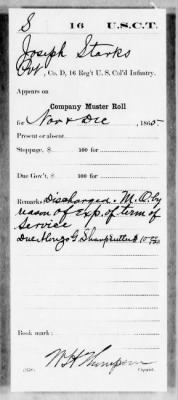 S 16 U.S.C.T.
Joseph Starks
Pvt, Co. D, 16 Reg't U. S. Col'd Infantry.
Appears on
Company Muster Roll
for Nov & Dec, 1865
Present or absent
Stoppage, $ 100 for
Due Gov't, $ 100 for
Remarks: Discharged. M.O. by
reason of Exp. of term of
service
Due Alonzo G. Sharp Sutler $
Book mark:
(358) Copyist.